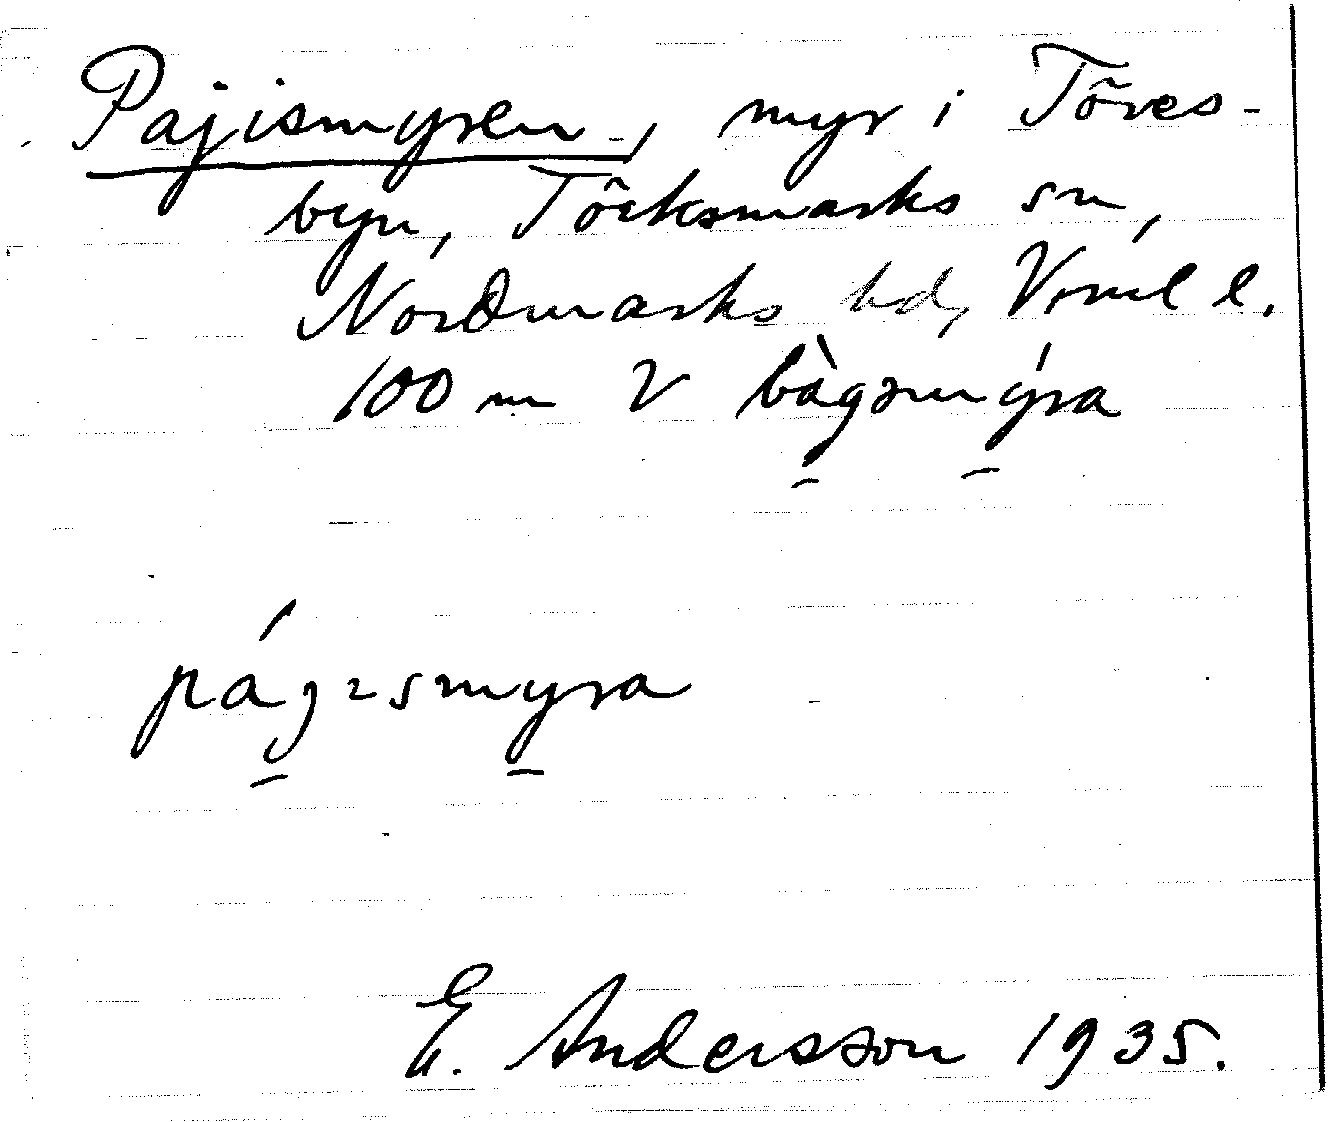 Pajismyren, myr i Töres-
byn, Töcksmarks sn,
Nordmarks hd, Vrml l.
100 m V bàgsmýra
págismyra
E. Andersson 1935.